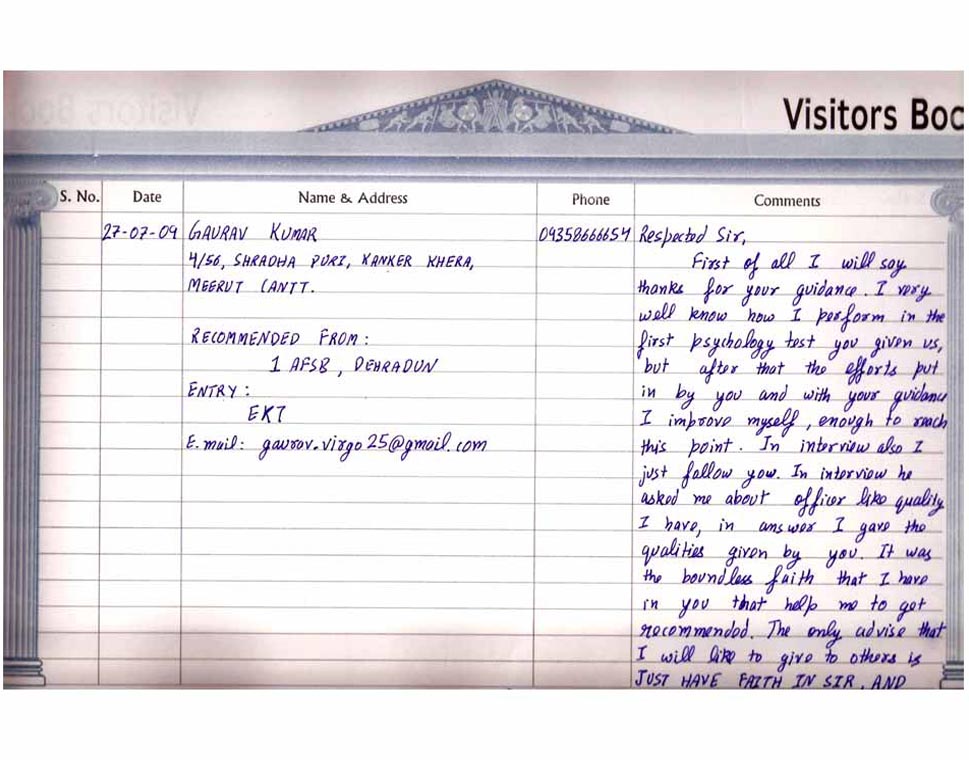 Visitors Boo
S. No. Date Name & Address Phone Comments
27-07-09 GAURAV KUMAR 09358666654 Respected Sir,
4/56, SHRADHA PURI, KANKER KHERA,
MEERUT CANTT.
RECOMMENDED FROM :
1 AFSB, DEHRADUN
ENTRY :
EKT
E.mail: gaurav.virgo25@gmail.com
First of all I will say
thanks for your guidance. I very
well know how I perform in the
first psychology test you given us,
but after that the efforts put
in by you and with your guidance
I improve myself, enough to reach
this point. In interview also I
just follow you. In interview he
asked me about officer like quality
I have, in answer I gave the
qualities given by you. It was
the boundless faith that I have
in you that help me to get
recommended. The only advise that
I will like to give to others is
JUST HAVE FAITH IN SIR, AND